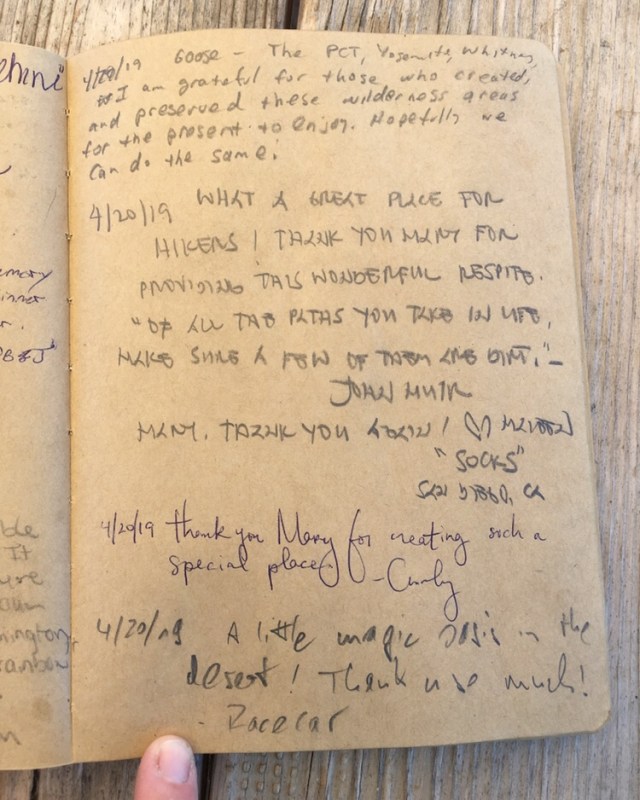 ehini"
emory
inner
r.
PB&J"
ble
It
ure
mington,
ainbow
4/19/19 Goose - The PCT, Yosemite, Whitney,
I am grateful for those who created,
and preserved these wilderness areas
for the present to enjoy. Hopefully we
can do the same.
4/20/19 WHAT A GREAT PLACE FOR
HIKERS! THANK YOU MARY FOR
PROVIDING THIS WONDERFUL RESPITE.
"OF ALL THE PATHS YOU TAKE IN LIFE,
MAKE SURE A FEW OF THEM ARE DIRT."-
JOHN MUIR
MARY, THANK YOU AGAIN! ♡
"SOCKS"
SAN DIEGO, CA
4/20/19 thank you Mary for creating such a
special place. -Curly
4/20/19 A little magic oasis in the
desert! Thank u so much!
- Racecar